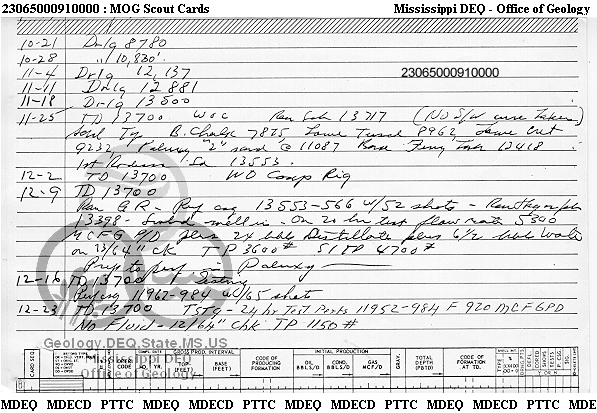 23065000910000 : MOG Scout Cards Mississippi DEQ - Office of Geology
10-21 Drlg 8780
10-28 " 10,830'
11-4 Drlg 12,137
23065000910000
11-11 Drlg 12 881
11-18 Drlg 13500
11-25 TD 13700 WOC Ran Sch 13717 (No S/W cores Taken)
B. Chalk 7875, Lower Tusc 8962, Lower Cret
9232 Paluxy "2" sand @ 11087 12418
1st Rodessa Sd 13553.
12-2 TD 13700 WO Comp Rig
12-9 TD 13700
Ran G R - Perf csg 13553-566 W/52 shots - Ran
13398 - well in - On 20 hr test flow rate 5340
MCFG P/D plus 24 bbl Distillate plus 6 1/2 bbl Water
on 13/64" ck TP 3600# SITP 4700#
Prep to perf in Paluxy
12-16 TD 13700 Testing
Perf csg 11962-984 W/65 shots
12-23 TD 13700 TSTg - 24 hr Test Perfs 11952-984 F 920 MCFGPD
No Fluid - 12/64" Chk TP 1150#
Geology.DEQ.State.MS.US
Mississippi DEQ
Office of Geology
CARD SEQ. COMPL. DATE GROSS PROD. INTERVAL CODE OF PRODUCING FORMATION INITIAL PRODUCTION GRAV. TOTAL DEPTH (PBTD) CODE OF FORMATION AT TD.
MO. YR. TOP (FEET) BASE (FEET) OIL BBLS/D COND. BBLS/D GAS MCF/D
MDEQ MDECD PTTC MDEQ MDECD PTTC MDEQ MDECD PTTC MDEQ MDECD PTTC MDE